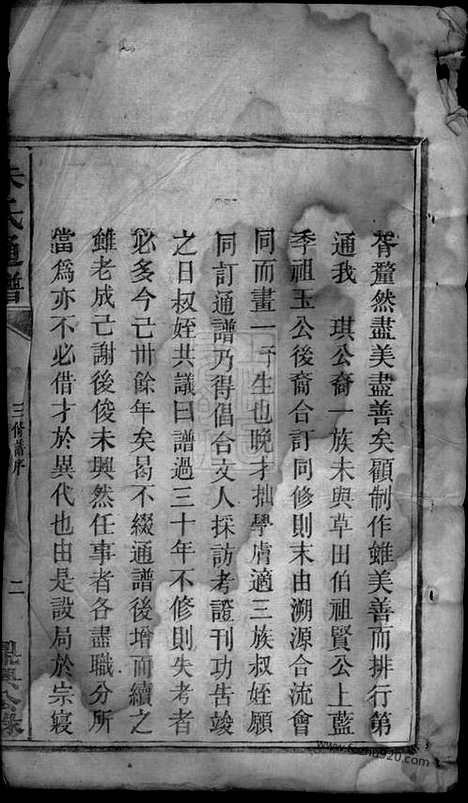 胥釐然盡美盡善矣顧制作雖美善而排行第
通我 琪公裔一族未與草田伯祖賢公上藍
季祖玉公後裔合訂同修則末由溯源合流會
同而畫一 生也晚才拙學膚適三族叔姪願
同訂通譜乃得倡合文人採訪考證刊功告竣
之日叔姪共議曰譜過三十年不修則失考者
必多今已卅餘年矣曷不綴通譜後增而續之
雖老成已謝後俊未興然任事者各盡職分所
當爲亦不必借才於異代也由是設局於宗寢
氏通譜
三修譜序
二